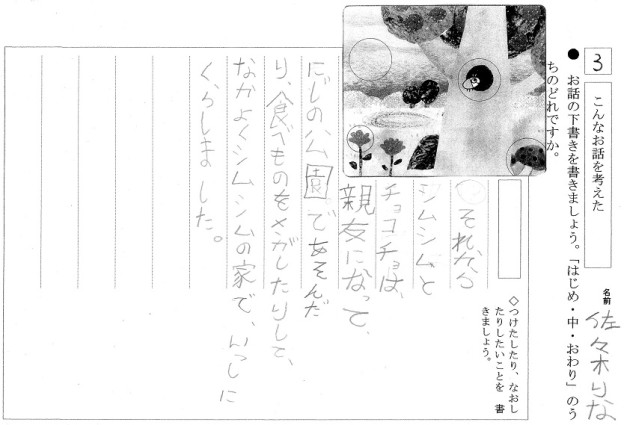 3
こんなお話を考えた
● お話の下書きを書きましょう。「はじめ・中・おわり」のう
ちのどれですか。
名前 佐々木りな
◇つけたしたり、なおし
たりしたいことを 書
きましょう。
それから
シムシムと
チョコチョは、
親友になって、
にじの公園であそんだ
り、食べものをさがしたりして、
なかよくシムシムの家で、いっしに
くらしました。